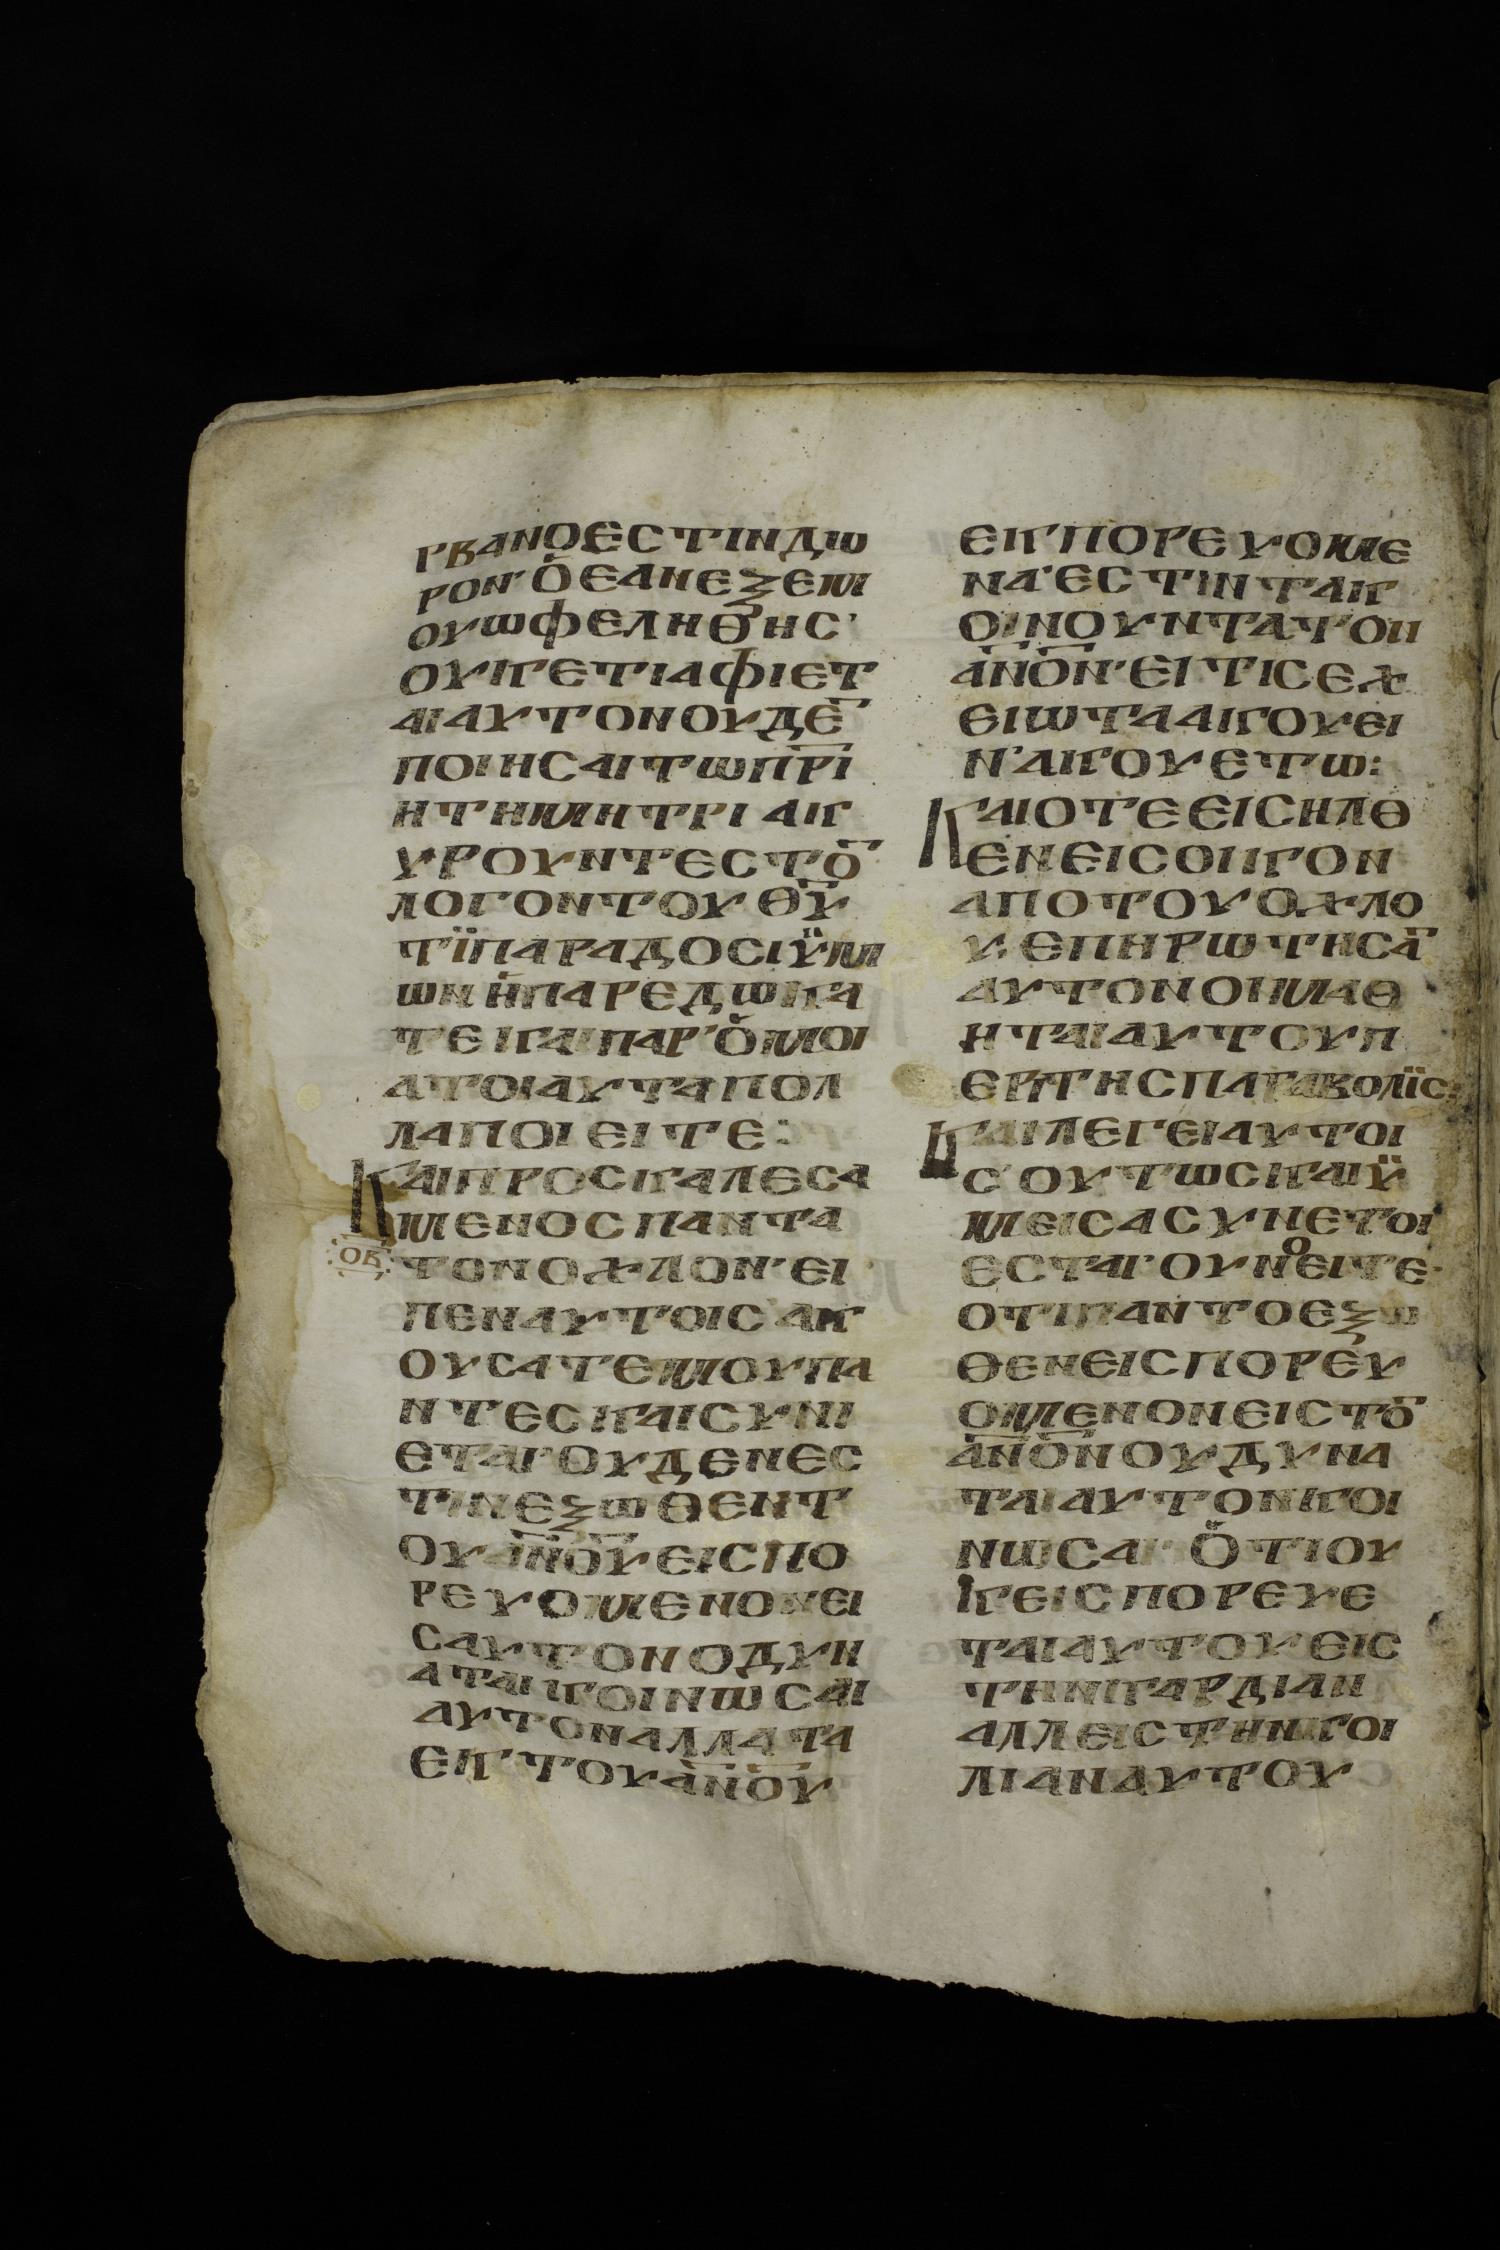 ΓΒΑΝΟΕСΤΙΝΔΩ
ΡΟΝ·ΟΕΑΝΕΞΕΜ
ΟΥΩΦΕΛΗΘΗС·
ΟΥΚΕΤΙΑΦΙΕΤ
ΑΙΑΥΤΟΝΟΥΔΕ̅
ΠΟΙΗСΑΙΤΩΠ̅Ρ̅Ι
ΗΤΗΜΗΤΡΙΑΚ
ΥΡΟΥΝΤΕСΤΟ̅
ΛΟΓΟΝΤΟΥΘ̅Υ̅
ΤΪΠΑΡΑΔΟСΙΫΜ
ΩΝΗΠΑΡΕΔΩΚΑ
ΤΕΚΑΙΠΑΡ'ΟΜΟΙ
ΑΤΟΙΑΥΤΑΠΟΛ
ΛΑΠΟΙΕΙΤΕ:
ΚΑΙΠΡΟСΚΑΛΕСΑ
ΜΕΝΟСΠΑΝΤΑ
Ο̅Β̅
ΤΟΝΟΧΛΟΝ·ΕΙ
ΠΕΝΑΥΤΟΙСΑΚ
ΟΥСΑΤΕΜΟΥΠΑ
ΝΤΕСΚΑΙСΥΝΙ
ΕΤΑΙ·ΟΥΔΕΝΕС
ΤΙΝΕΞΩΘΕΝΤ
ΟΥΑ̅Ν̅Ο̅Υ̅ΕΙСΠΟ
ΡΕΥΟΜΕΝΟΝΕΙ
СΑΥΤΟΝΟΔΥΝ
ΑΤΑΙΚΟΙΝΩСΑΙ
ΑΥΤΟΝΑΛΛΑΤΑ
ΕΚΤΟΥΑ̅Ν̅Ο̅Υ̅
ΕΚΠΟΡΕΥΟΜΕ
ΝΑ·ΕСΤΙΝΤΑΚ
ΟΙΝΟΥΝΤΑΤΟΝ
Α̅Ν̅Ο̅Ν̅·ΕΙΤΙСΕΧ
ΕΙΩΤΑΑΚΟΥΕΙ
Ν·ΑΚΟΥΕΤΩ:
ΚΑΙΟΤΕΕΙСΗΛΘ
ΕΝΕΙСΟΙΚΟΝ
ΑΠΟΤΟΥΟΧΛΟ
Υ·ΕΠΗΡΩΤΗСΑ̅
ΑΥΤΟΝΟΙΜΑΘ
ΗΤΑΙΑΥΤΟΥΠ
ΕΡΙΤΗСΠΑΡΑΒΟΛΪС:
ΚΑΙΛΕΓΕΙΑΥΤΟΙ
С·ΟΥΤΩСΚΑΙΫ
ΜΕΙСΑСΥΝΕΤΟΙ
ΕСΤΑΙ·ΟΥΝΟΕΙΤΕ·
ΟΤΙΠΑΝΤΟΕΞΩ
ΘΕΝΕΙСΠΟΡΕΥ
ΟΜΕΝΟΝΕΙСΤΟ̅
Α̅Ν̅Ο̅Ν̅ΟΥΔΥΝΑ
ΤΑΙΑΥΤΟΝΚΟΙ
ΝΩСΑΙΟΤΙΟΥ
ΚΕΙСΠΟΡΕΥΕ
ΤΑΙΑΥΤΟΥΕΙС
ΤΗΝΚΑΡΔΙΑΝ
ΑΛΛΕΙСΤΗΝΚΟΙ
ΛΙΑΝΑΥΤΟΥ